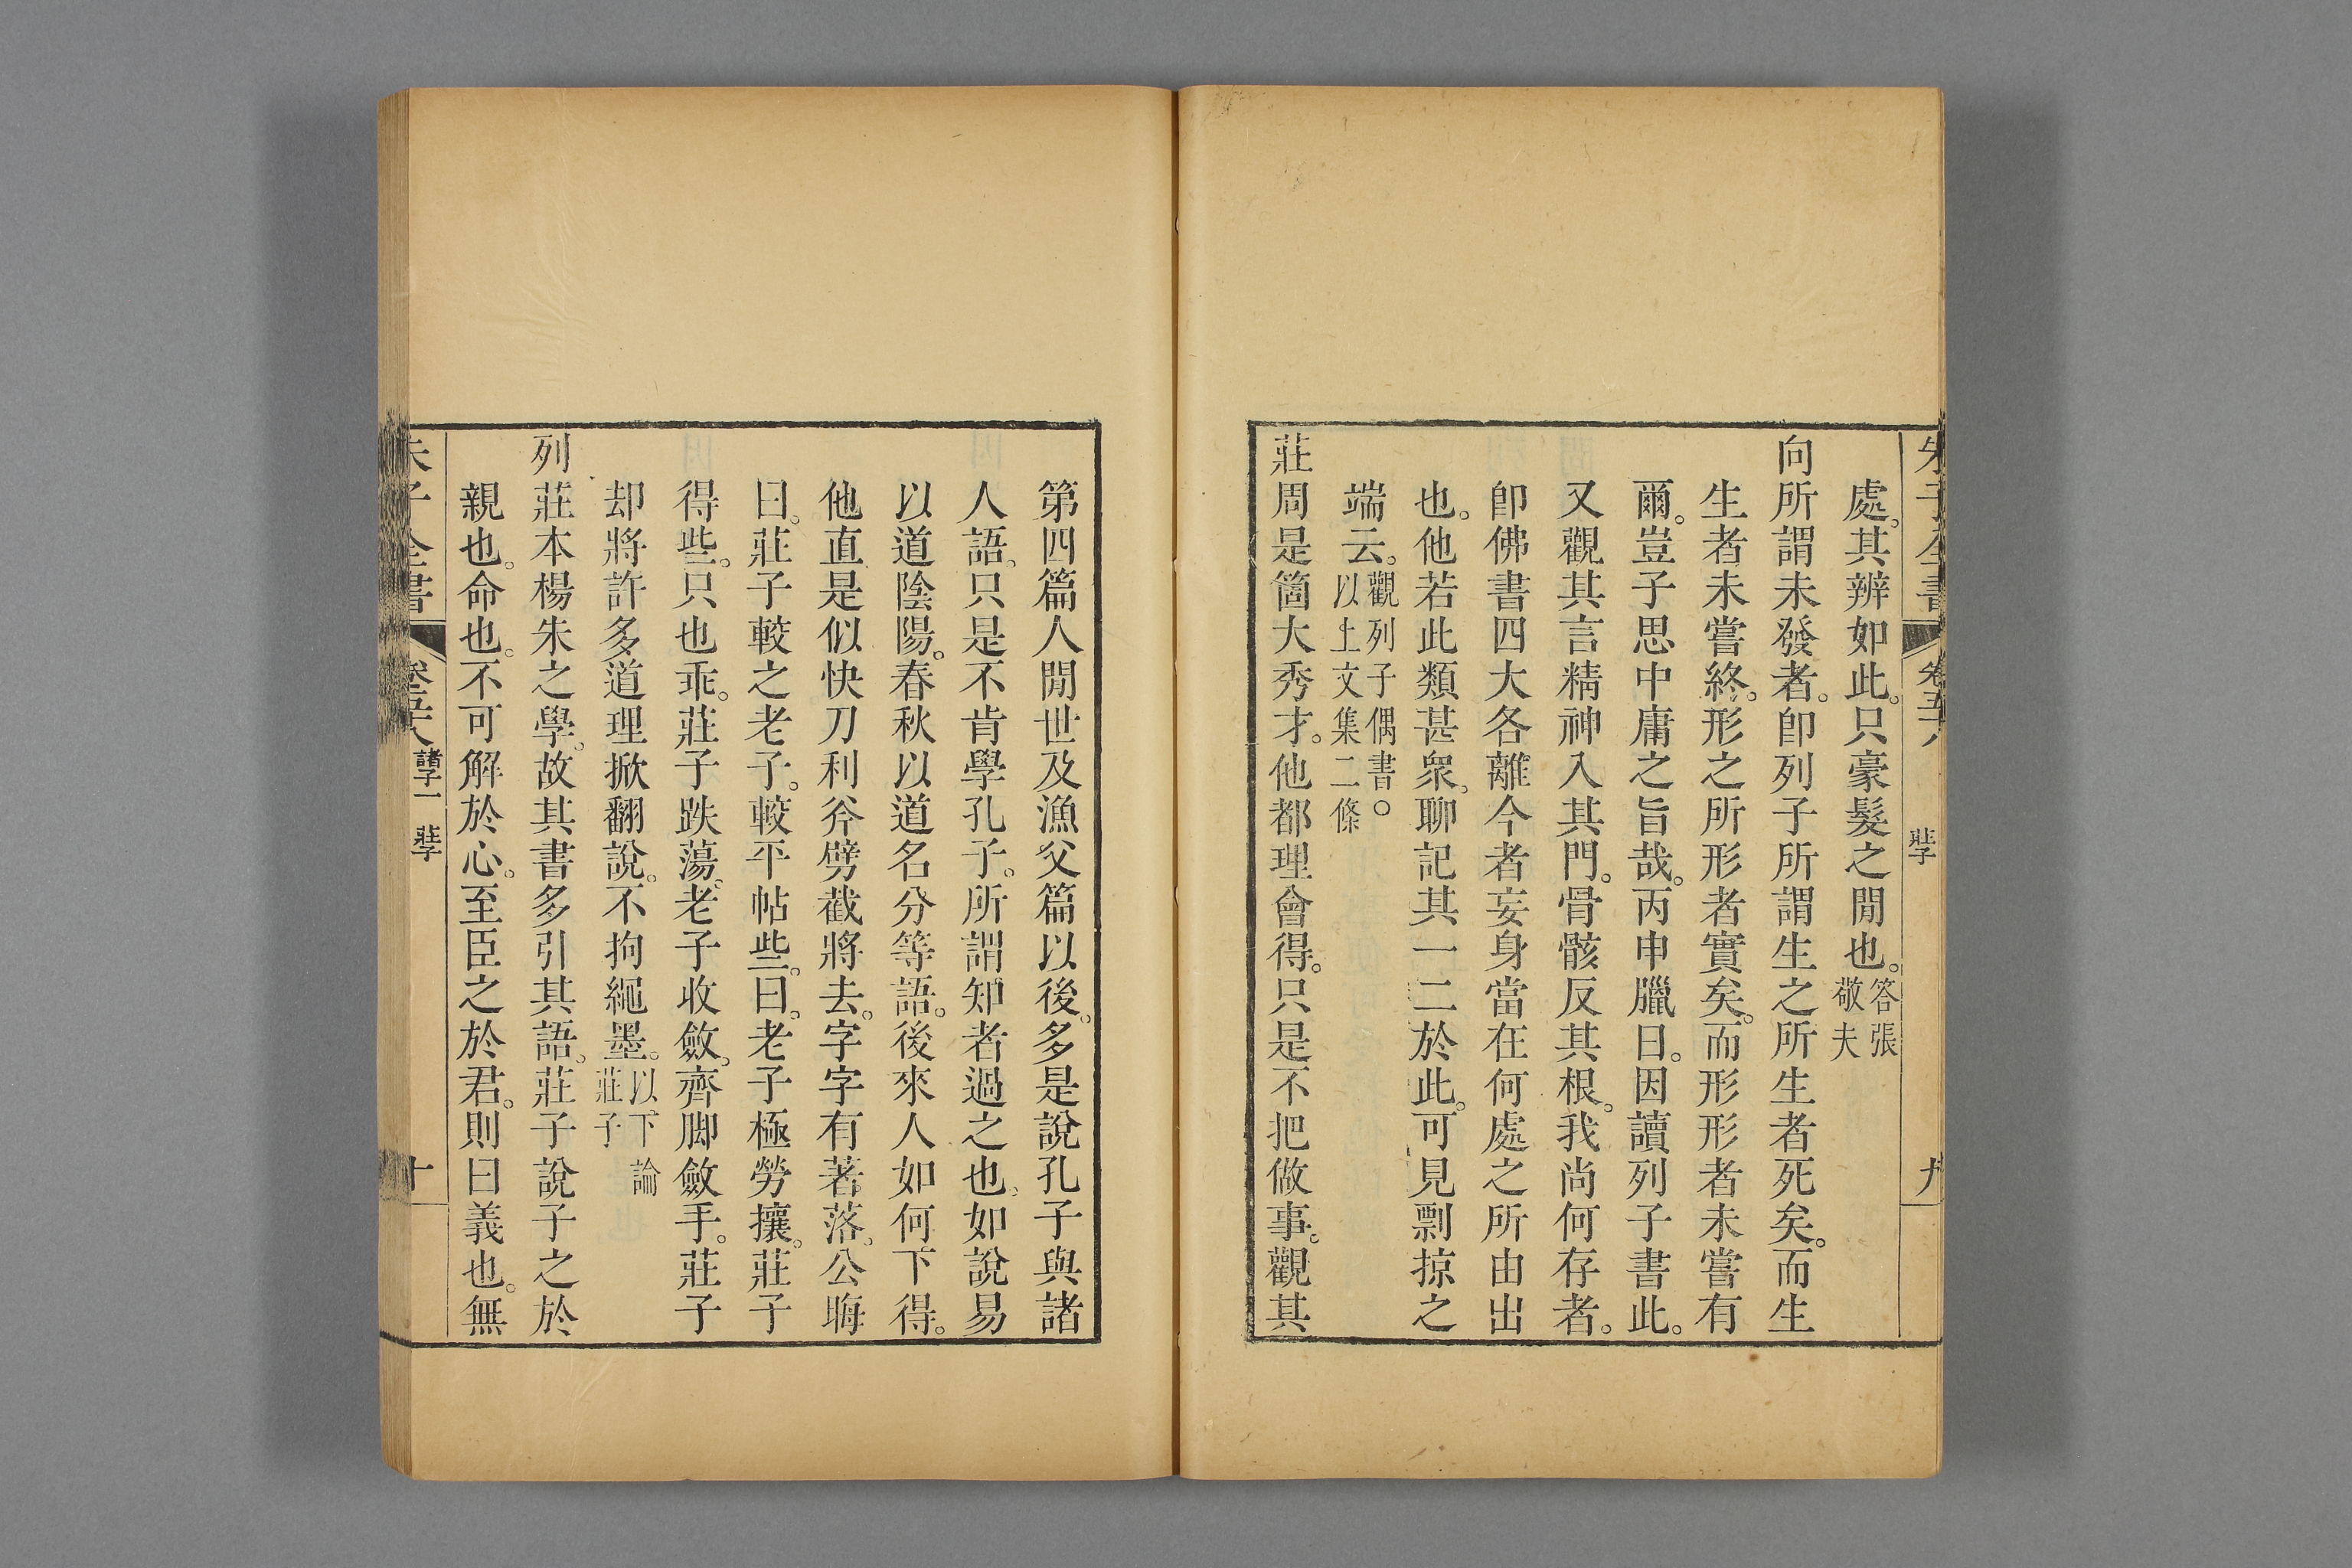 朱子全書 卷五十八 莊子 九
處。其辨如此。只豪髮之閒也。答張敬夫
向所謂未發者。卽列子所謂生之所生者死矣。而生
生者未嘗終。形之所形者實矣。而形形者未嘗有
爾。豈子思中庸之旨哉。丙申臘日。因讀列子書此。
又觀其言精神入其門。骨骸反其根。我尚何存者。
卽佛書四大各離今者妄身當在何處之所由出
也。他若此類甚衆。聊記其一二於此。可見剽掠之
端云。觀列子偶書。○以上文集二條
莊周是箇大秀才。他都理會得。只是不把做事。觀其
第四篇人閒世及漁父篇以後。多是說孔子與諸
人語。只是不肯學孔子。所謂知者過之也。如說易
以道陰陽。春秋以道名分等語。後來人如何下得。
他直是似快刀利斧劈截將去。字字有著落。公晦
曰。莊子較之老子。較平帖些。曰。老子極勞攘。莊子
得些。只也乖。莊子跌蕩。老子收斂。齊脚斂手。莊子
却將許多道理掀翻說。不拘繩墨。以下論莊子
列莊本楊朱之學。故其書多引其語。莊子說子之於
親也。命也。不可解於心。至臣之於君。則曰義也。無
朱子全書 卷五十八 諸子一 莊子 十